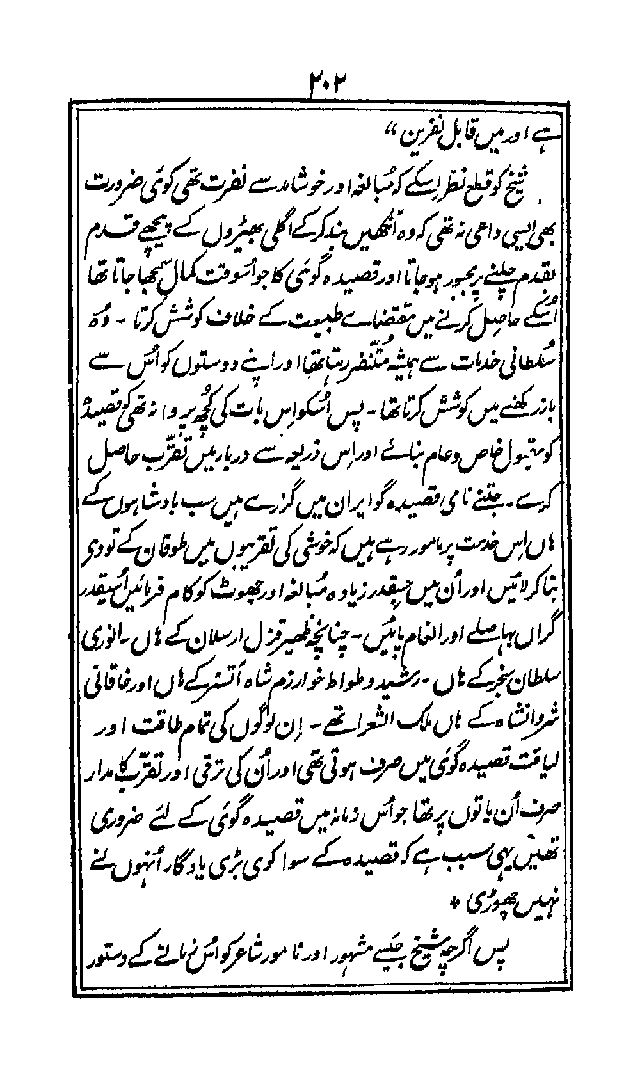 ۲۰۲
ہے اور میں قابل نفرین"
شیخ کو قطع نظر اِسکے کہ مُبالغہ اور خوشامد سے نفرت تھی کوئی ضرورت
بھی ایسی داعی نہ تھی کہ وہ آنکھیں بند کرکے اگلی بھیڑوں کے پیچھے قدم
بقدم چلنے پر مجبور ہو جاتا اور قصیدہ گوئی کا جو اُسوقت کمال سمجھا جاتا تھا
اُسکے حاصل کرنے میں مقتضاے طبیعت کے خلاف کوشش کرتا - وُہ
سُلطانی خدمات سے ہمیشہ مُتنفر رہتا تھا اور اپنے دوستوں کو اُس سے
باز رکھنے میں کوشش کرتا تھا - پس اُسکو اِس بات کی کُچھ پروا نہ تھی کہ قصیدہ
کو مقبول خاص و عام بنائے اور اِس ذریعہ سے دربار میں تقرّب حاصل
کرے - جتنے نامی قصیدہ گو ایران میں گزرے ہیں سب بادشاہوں کے
ہاں اِس خدمت پر مامور رہے ہیں کہ خوشی کی تقریبوں میں طوفان کے تودی
بنا کر لائیں اور اُن میں جسقدر زیادہ مُبالغہ اور جھوٹ کو کام فرمائیں اُسیقدر
گراں بہا صلے اور انعام پائیں - چنانچہ ظہیر قزل ارسلان کے ہاں - انوری
سلطان سنجر کے ہاں - رشید و طواط خوارزم شاہ اُتسز کے ہاں اور خاقانی
شروانشاہ کے ہاں ملک الشعرا تھے - اِن لوگوں کی تمام طاقت اور
لیاقت قصیدہ گوئی میں صرف ہوتی تھی اور اُن کی ترقی اور تقرّب کا مدار
صرف اُن باتوں پر تھا جو اُس زمانہ میں قصیدہ گوئی کے لئے ضروری
تھیں یہی سبب ہے کہ قصیدہ کے سوا کوی بڑی یادگار اُنہوں نے
نہیں چھوڑی +
پس اگرچہ شیخ جیسے مشہور اور نامور شاعر کو اُس زمانے کے دستور